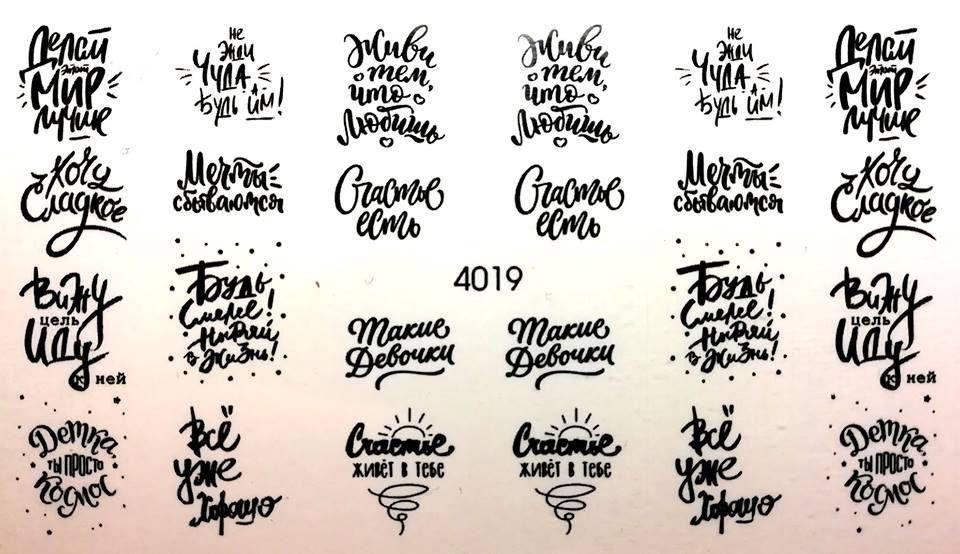 Делай
этот
Мир
лучше
не
жди
чуда
будь им!
Живи
тем,
что
Любишь
Живи
тем,
что
Любишь
не
жди
чуда
будь им!
Делай
этот
Мир
лучше
Хочу
Сладкое
Мечты
сбываются
Счастье
есть
Счастье
есть
Мечты
сбываются
Хочу
Сладкое
Вижу
цель
Иду
к ней
Будь
Смелее!
Ныряй
в Жизнь!
4019
Такие
Девочки
Такие
Девочки
Будь
Смелее!
Ныряй
в Жизнь!
Вижу
цель
Иду
к ней
Детка,
ты просто
Космос
Всё
уже
Хорошо
Счастье
живёт в тебе
Счастье
живёт в тебе
Всё
уже
Хорошо
Детка,
ты просто
Космос